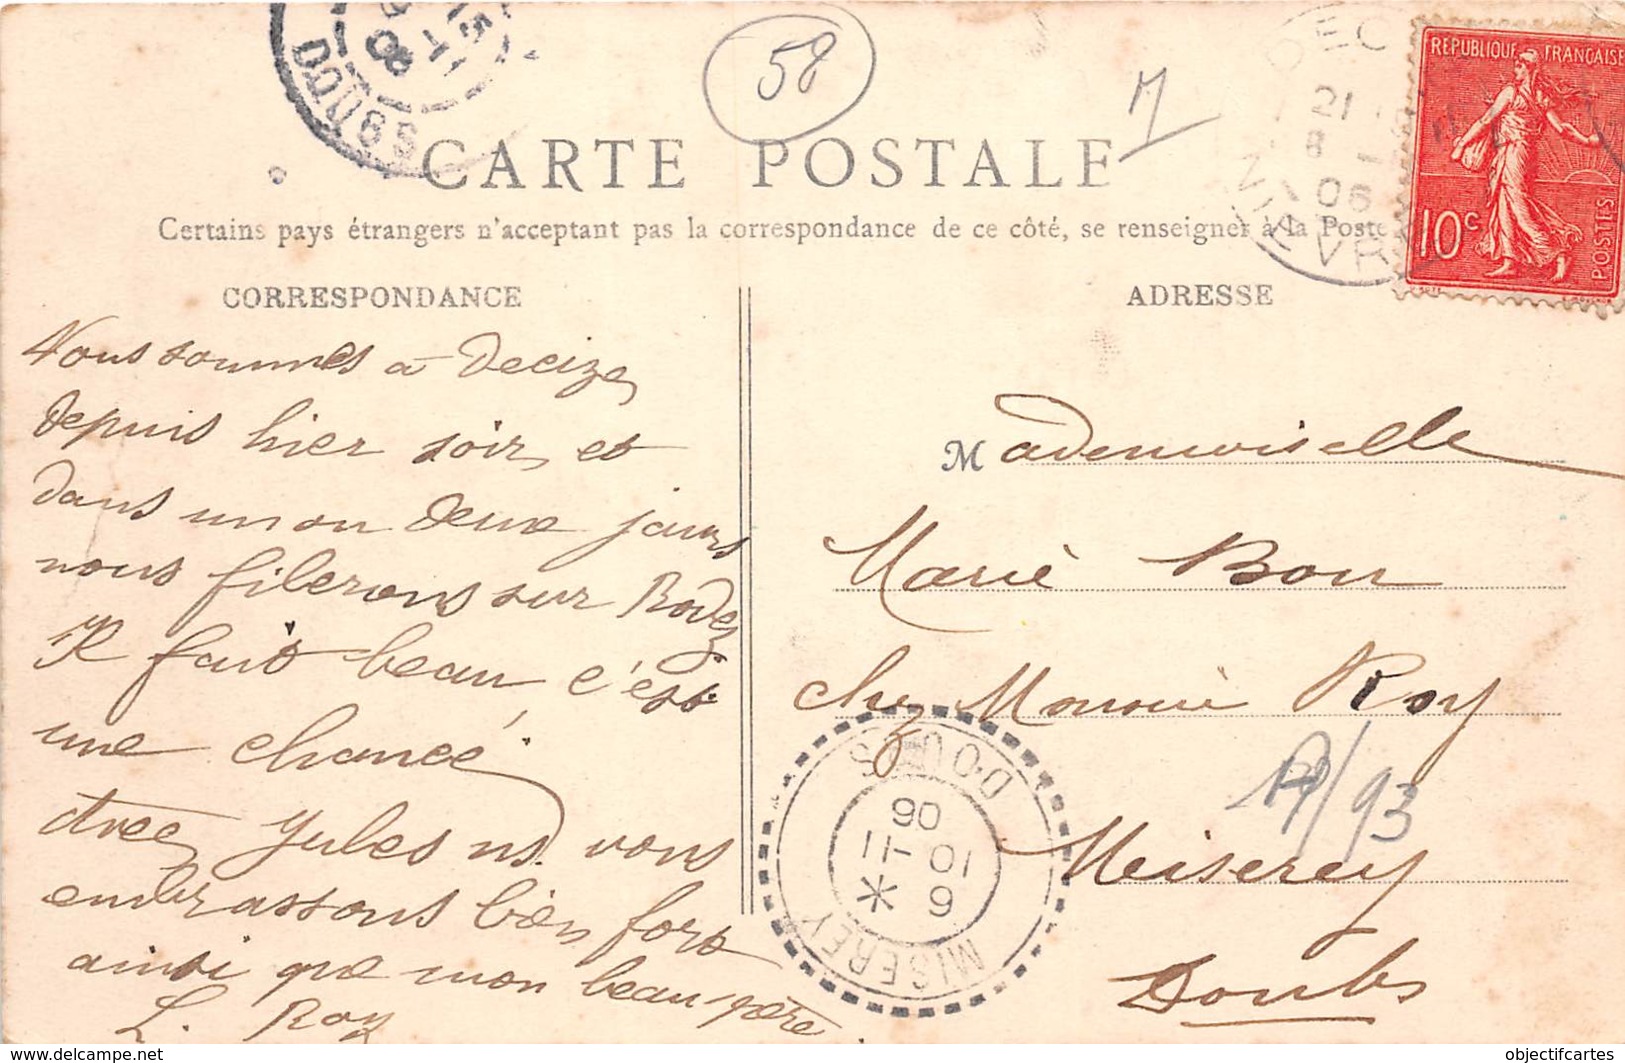 15
9 -11
06
DOUBS
58
M
DEC
21
8 - 11
06
NIÈVRE
REPUBLIQUE FRANÇAISE
10c
POSTES
CARTE POSTALE
Certains pays étrangers n'acceptant pas la correspondance de ce côté, se renseigner à la Poste
CORRESPONDANCE
Nous sommes à Decize
depuis hier soir, et
dans un ou deux jours
nous filerons sur Rodez
Il fait beau c'est
une chance
avec Jules ns. vous
embrassons bien fort
ainsi que mon beau-père.
L. Roy
ADRESSE
Mademoiselle
Marie Bon
chez Monsieur Roy
Miserey
Doubs
/93
DOUBS
06
10 -11
9 *
MISEREY
objectifcartes